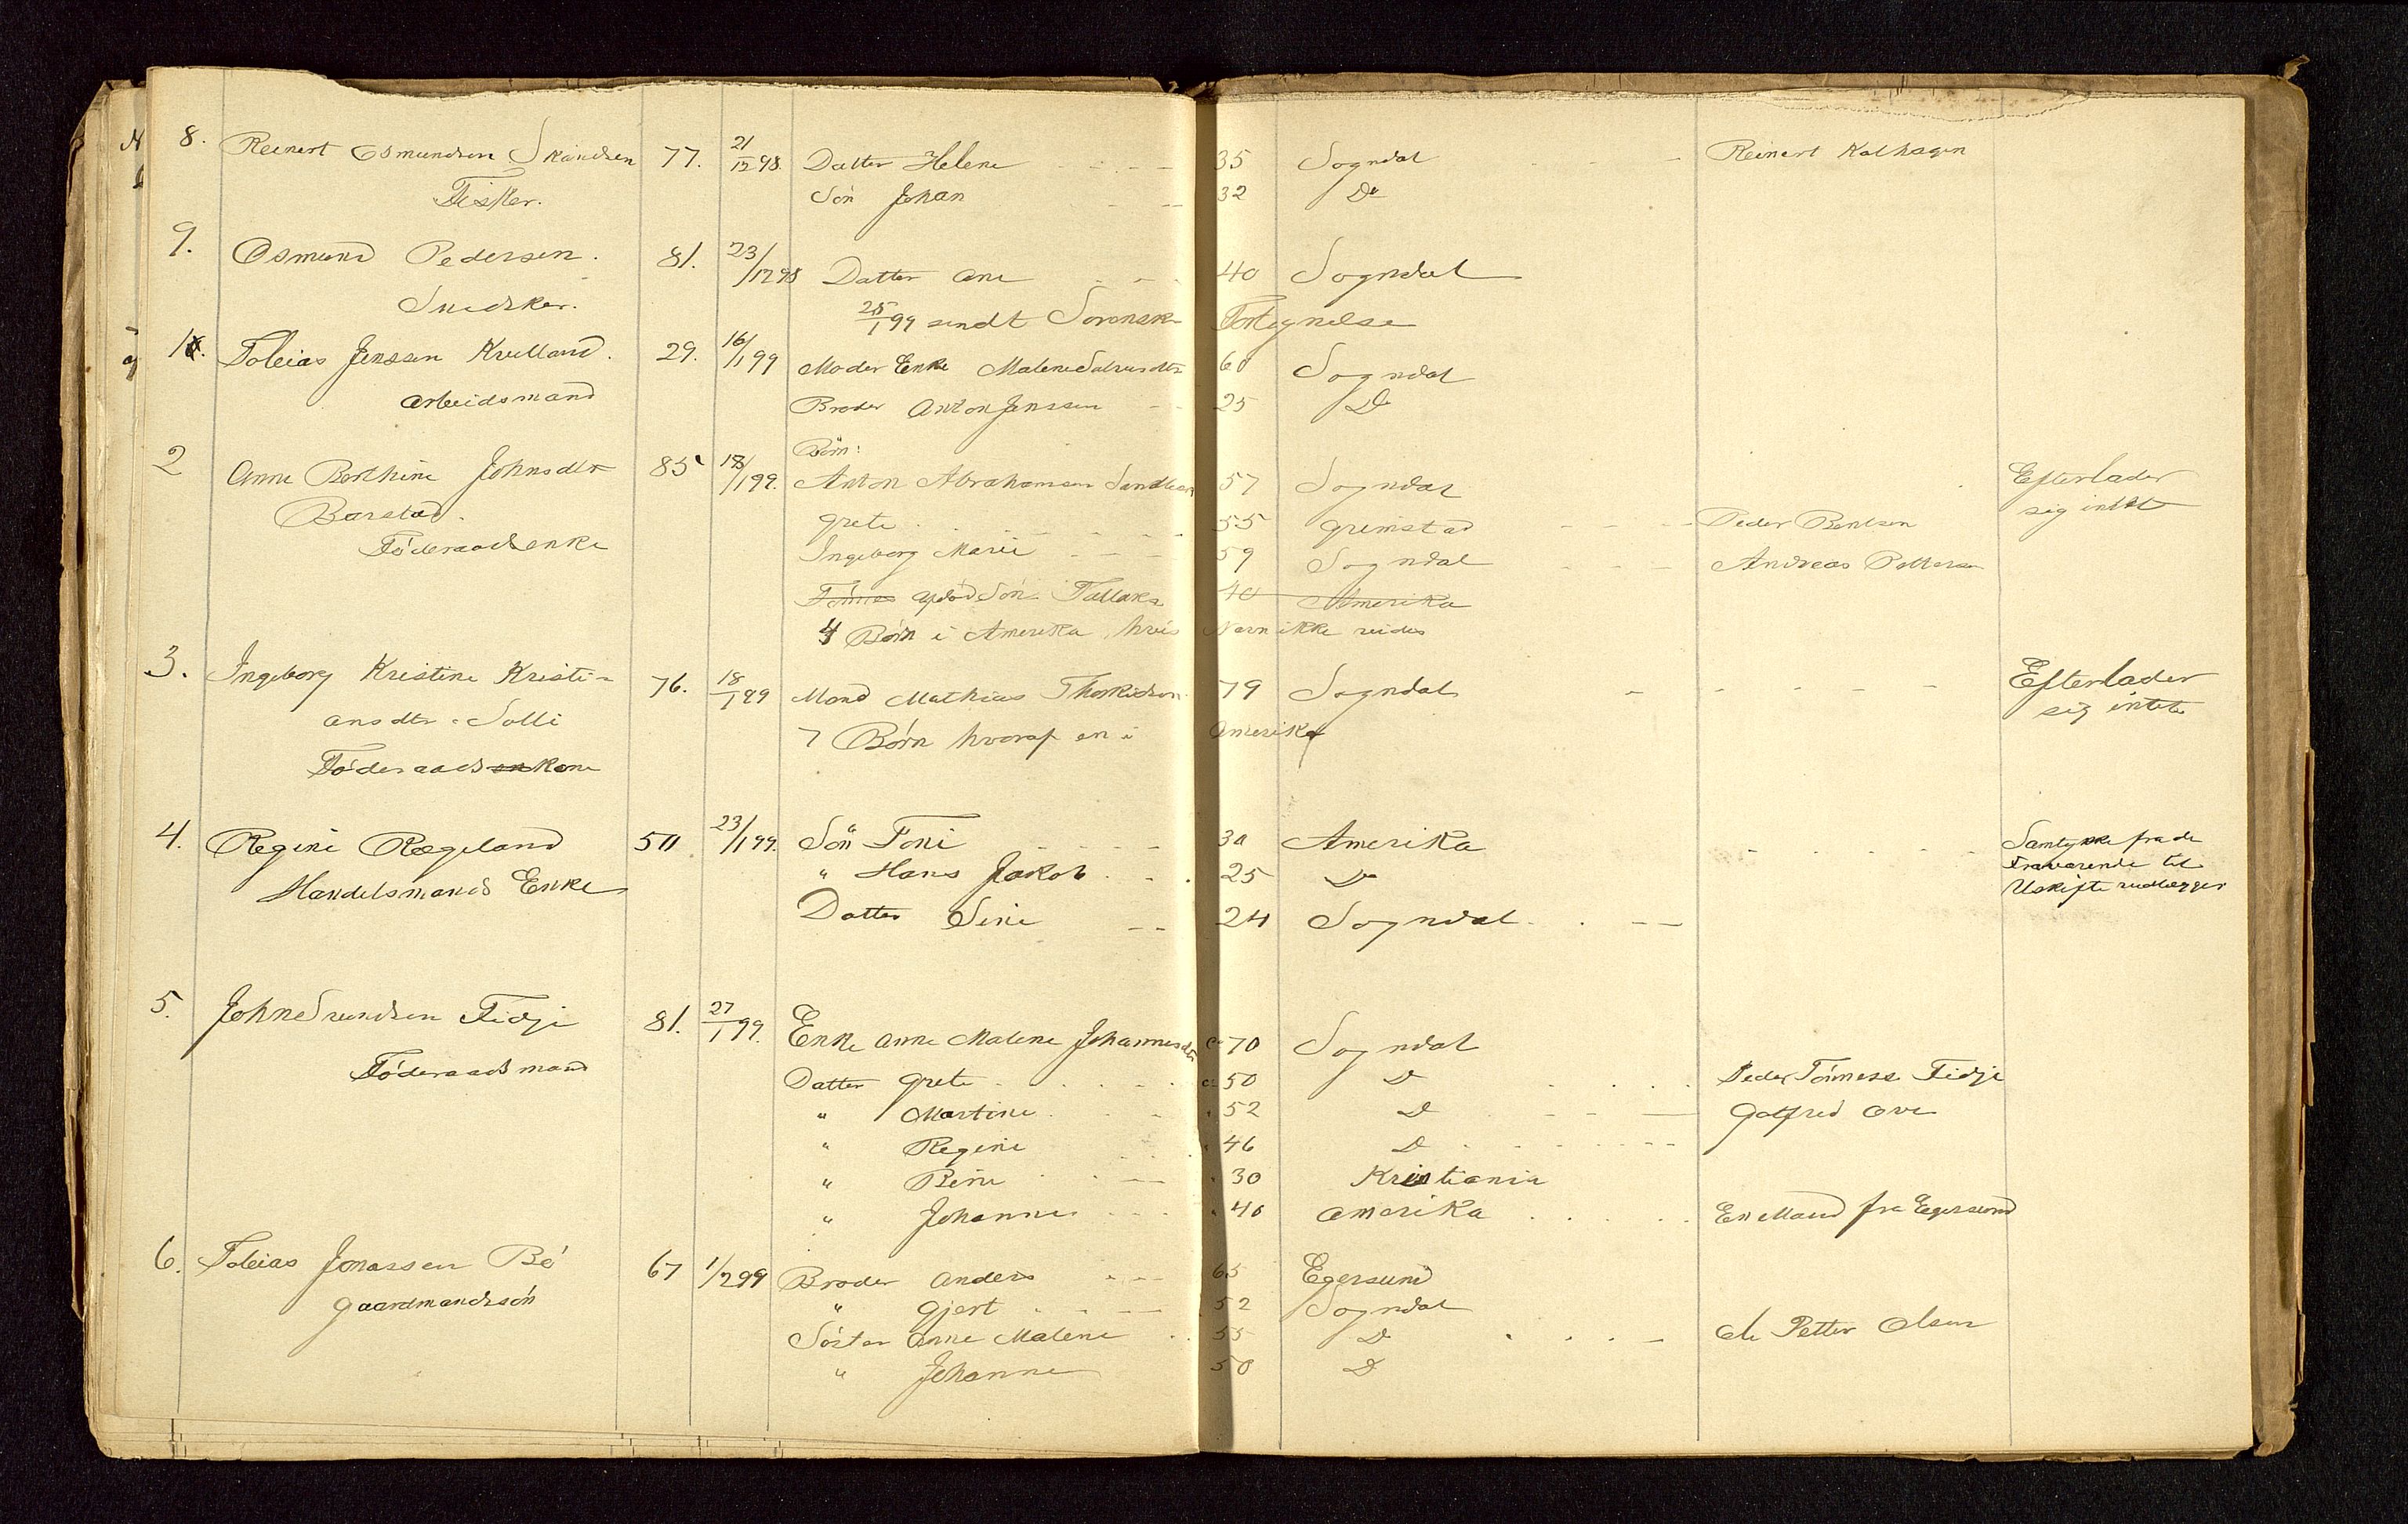 8. Reinert Osmundsen Skandsen 77. 21/12 98. Datter Helene 35 Sogndal Reinert Kalhagen
Fisker. Sön Johan 32 Do
9. Osmund Pedersen. 81. 23/12 98 Datter Ane 40 Sogndal
Snedker.
25/1 99 sendt Sorensk Fortegnelse
1. Tobias Jenssen Kvelland. 29. 16/1 99 Moder Enke Malene 60 Sogndal
Arbeidsmand Broder Anton Jenssen 25 Do
Börn:
2 Anne Berthine Johnsdtr 85 18/1 99. Anton Abrahamsen 57 Sogndal Efterlader
Barstad. Grete 55 Grimstad Peder Bentsen sig intet
Föderaadsenke Ingeborg Marie 59 Sogndal Andreas Pettersen
Tönnes Sön Tallak 40 Amerika
4 Börn i Amerika hvis Navn ikke vides
3. Ingeborg Kristine Kristi- 76. 18/1 99 Mand Mathias Thorkildsen 79 Sogndal Efterlader
ansdtr. Solli 7 Börn hvoraf en i Amerika sig intet
Föderaads en kone
4. Regine Rægeland 50 23/1 99. Sön Toni 30 Amerika Samtykke fra de
Handelsmands Enke " Hans Jakob 25 Do Fraværende til
Datter Sine 24 Sogndal Uskifte vedlægges
5. John Fidje 81. 27/1 99. Enke Anne Malene Johannesdtr ca 70 Sogndal
Föderaadsmand Datter Grete ca 50 Do Peder Tönness. Fidje
" Martine " 52 Do Gotfred Ove
" Regine " 46 Do
" Bine " 30 Kristiania
" Johanne " 40 Amerika En Mand fra Egersund
6. Tobias Jonassen Bö 67 1/2 99 Broder Anders 65 Egersund
Gaardmandssön " Gjert 52 Sogndal
Söster Anne Malene 55 Do Ole Petter Olsen
" Johanne 50 Do